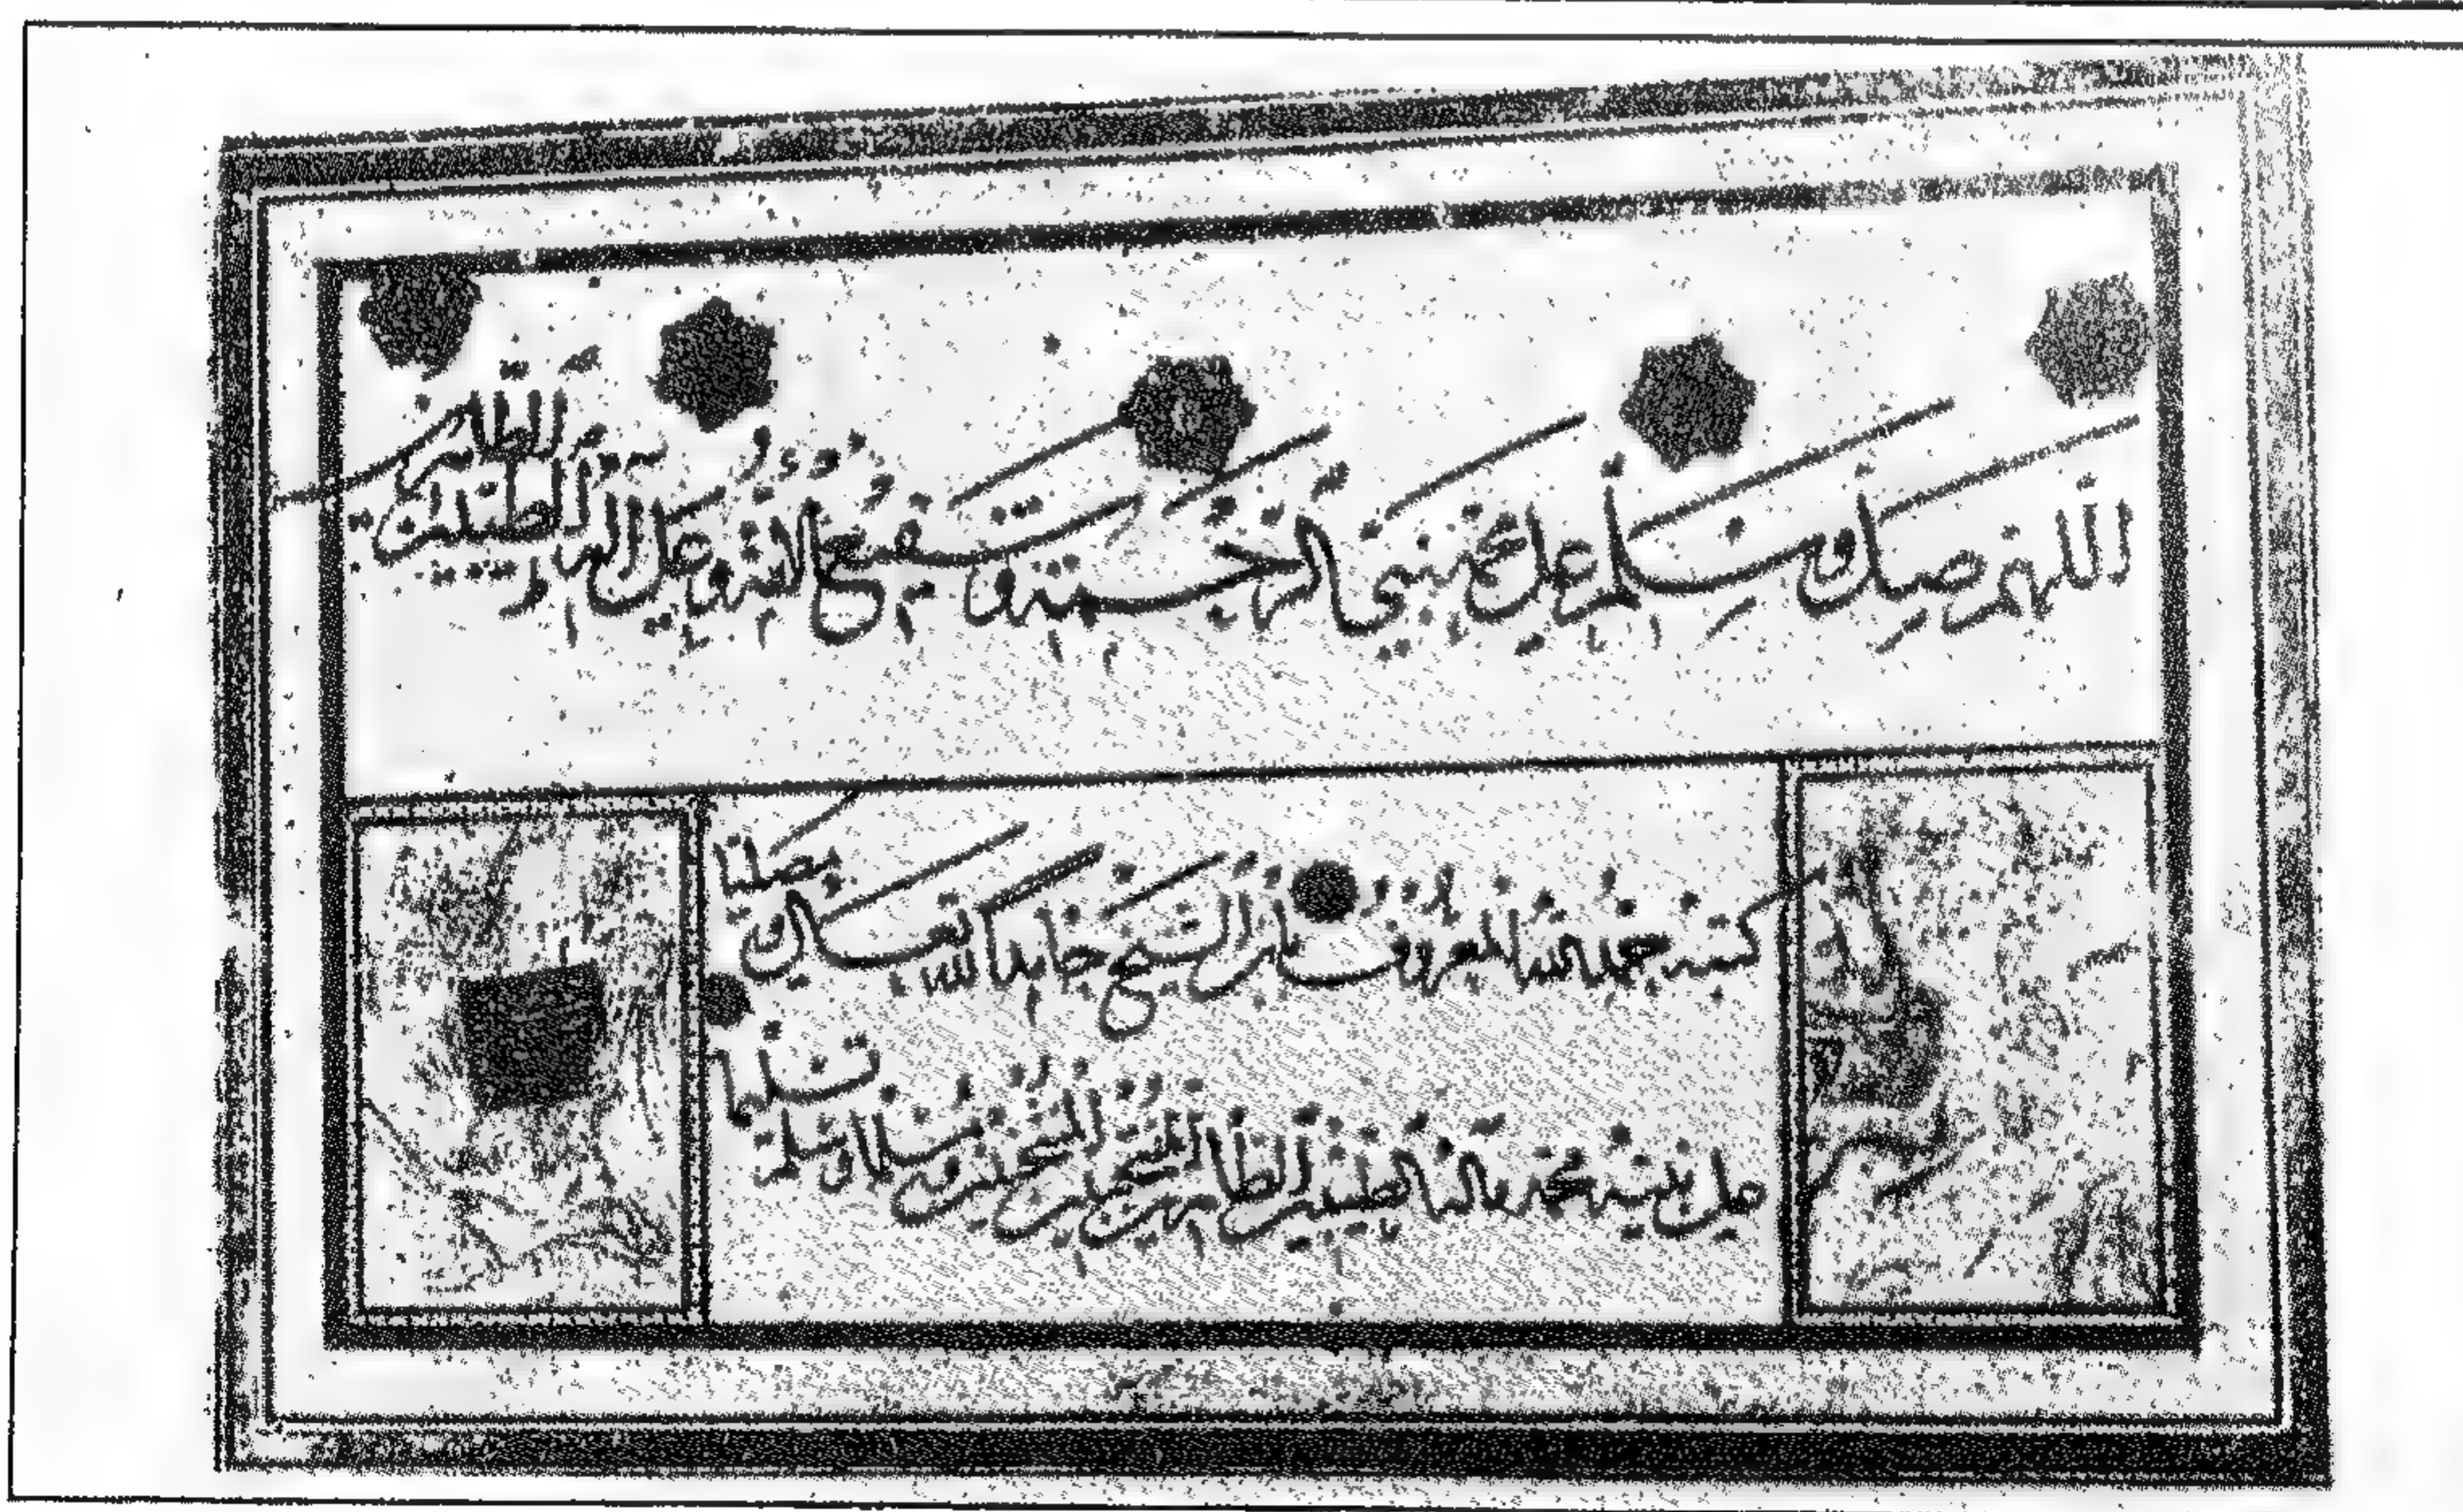 اللهم صل وسلم على محمد نبي الرحمة وشفيع الأمة وعلى آله الطيبين الطاهرين
كتبه حمد الله المعروف بابن الشيخ حامدا لله تعالى ومصليا
على نبيه محمد وآله الطيبين الطاهرين ومسلما تسليما